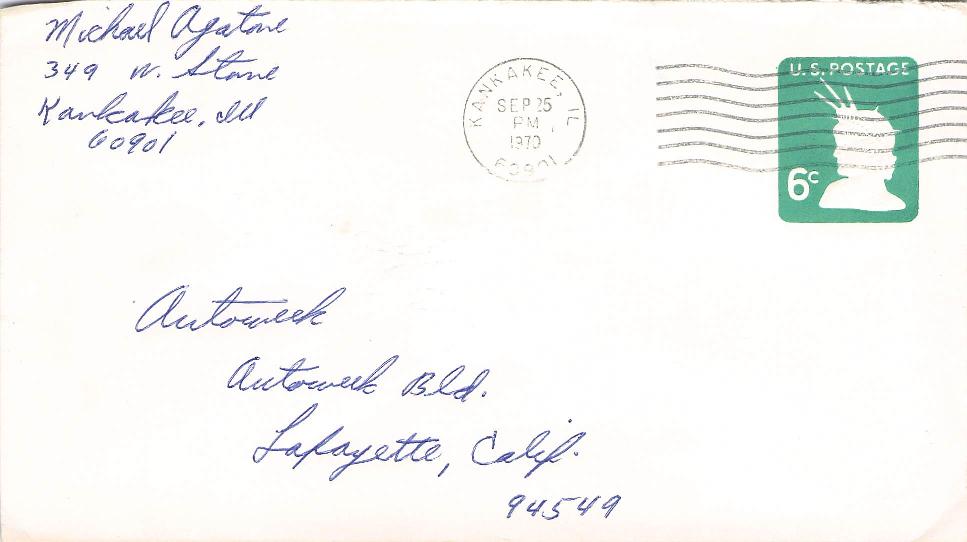 Michael Agatone
349 W. Stone
Kankakee, Ill
60901
KANKAKEE, IL
SEP 25
PM
1970
60901
U.S. POSTAGE
6c
Autoweek
Autoweek Bld.
Lafayette, Calif.
94549